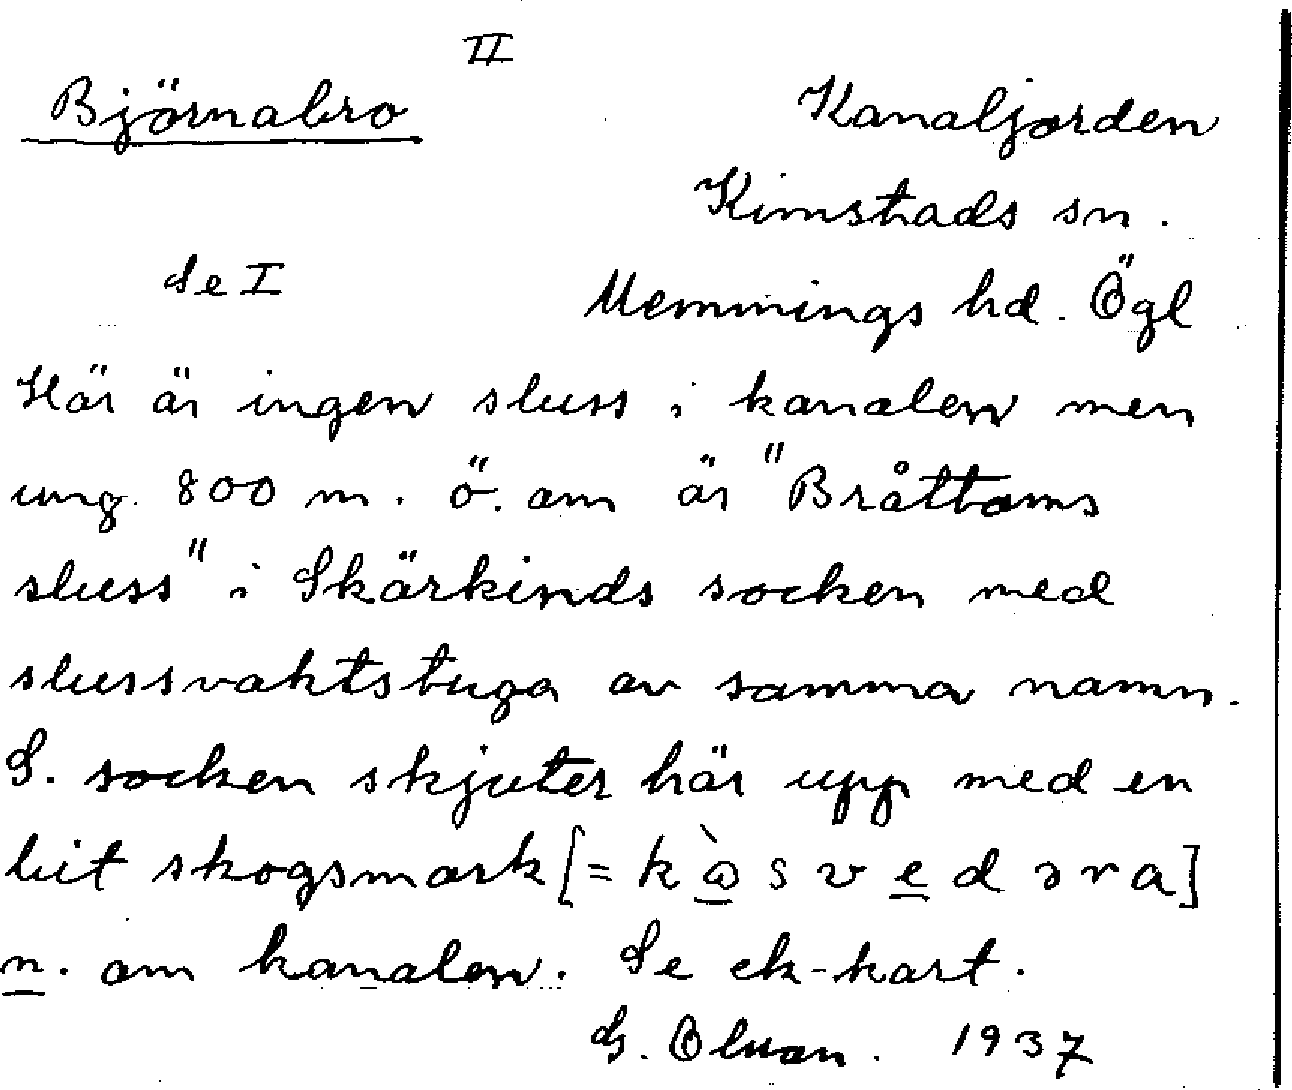 II
Björnabro
Kanaljorden
Kimstads sn.
Se I
Memmings hd. Ögl
Här är ingen sluss i kanalen men
ung. 800 m. ö. om är "Bråttoms
sluss" i Skärkinds socken med
slussvaktstuga av samma namn.
S. socken skjuter här upp med en
bit skogsmark [= k
n. om kanalen. Se ek-kart.
G. 1937